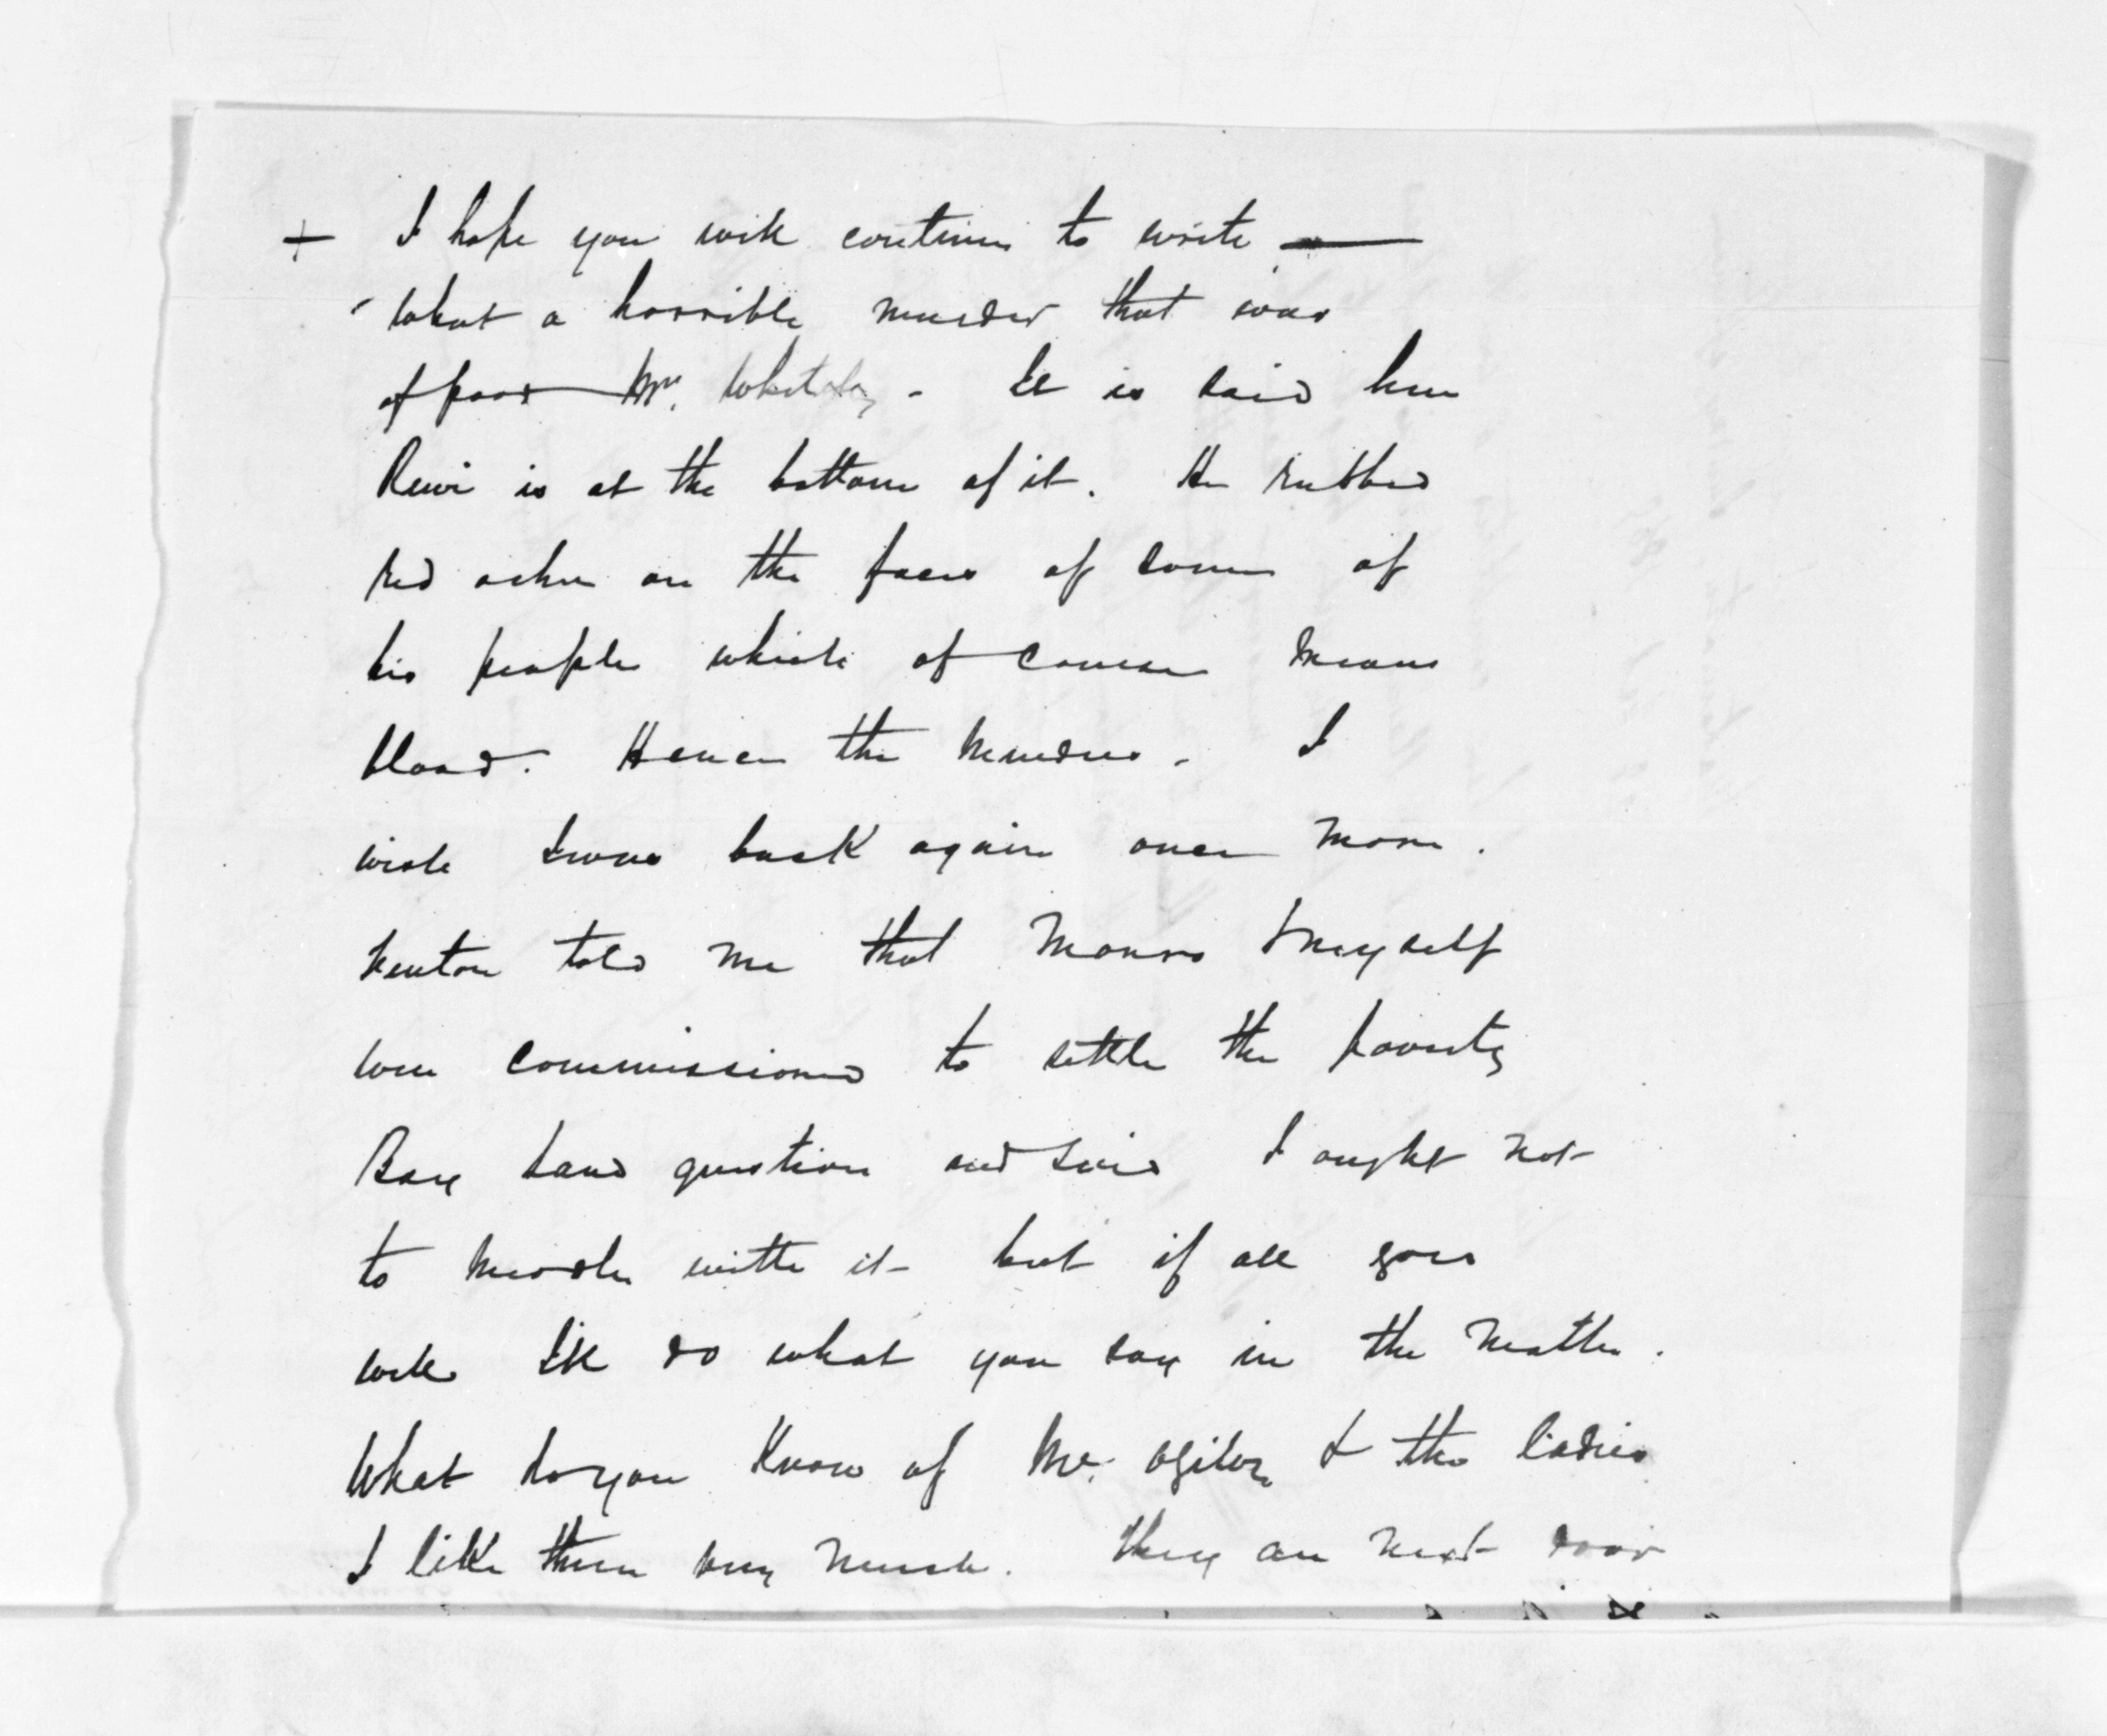 + I hope you will continue to write —
What a horrible murder that was
of poor Mr. Whiteley - It is said here
Rewi is at the bottom of it. He rubbed
red ochre on the faces of some of
his people which of course means
blood. Hence the murders. I
wish I was back again once more.
Fenton told me that Monro & myself
were commissioned to settle the Poverty
Bay land question and said I ought not
to meddle with it - but if all goes
well I'll do what you say in the matter.
What do you know of Mr. Ogilvy & the ladies
I like them very much. They are next door